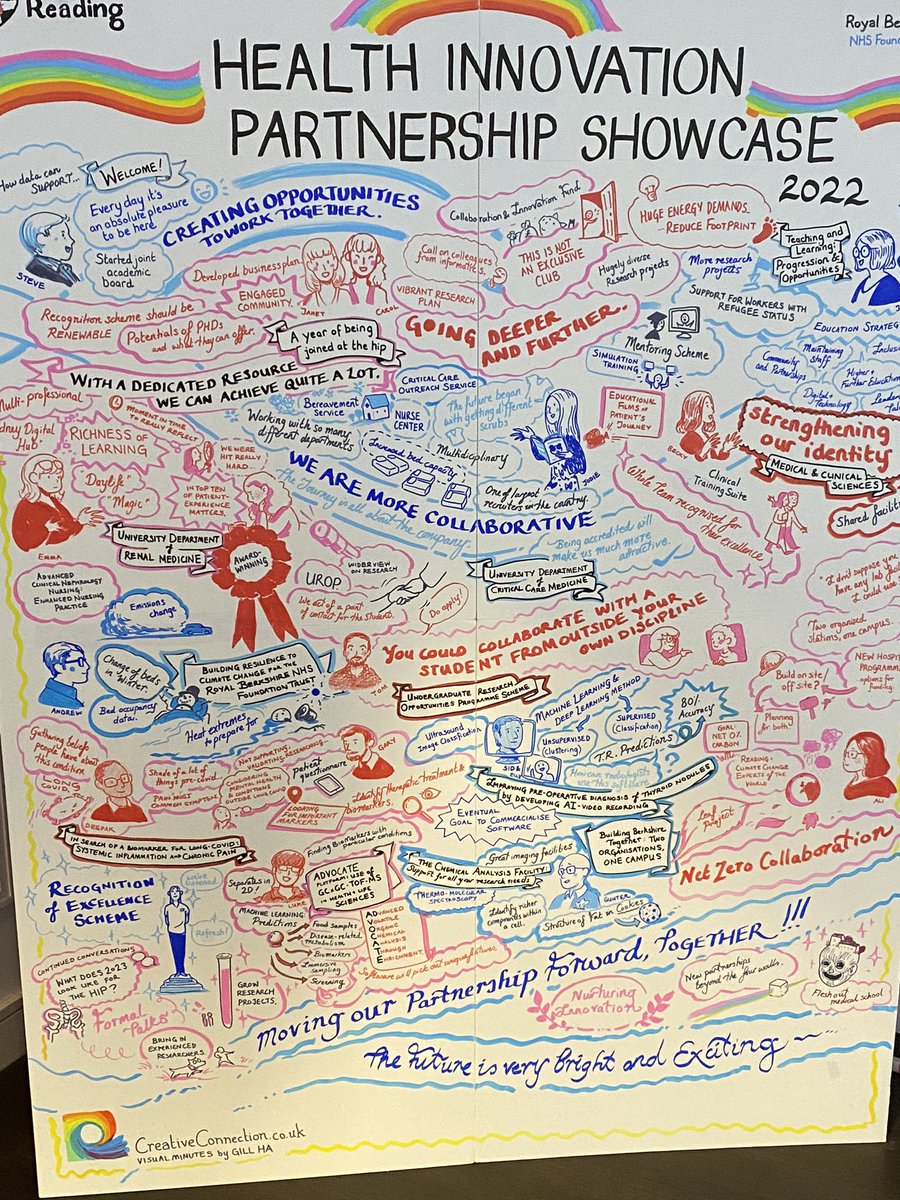 Reading
Royal Be
NHS Foun
HEALTH INNOVATION
PARTNERSHIP SHOWCASE
2022
How data can
SUPPORT...
WELCOME!
Every day it's
an absolute pleasure
to be here
Started joint
academic
Board
STEVE
CREATING OPPORTUNITIES
TO WORK TOGETHER.
Collaboration & Innovation Fund
THIS IS NOT
AN EXCLUSIVE
CLUB
HUGE ENERGY DEMANDS...
REDUCE FOOTPRINT
Teaching and
Learning:
Progression &
Opportunities
Developed business plan
ENGAGED
COMMUNITY.
JANET
CAROL
Call on colleagues
from informatics.
VIBRANT RESEARCH
PLAN
Hugely diverse
Research projects
More research
projects
SUPPORT FOR WORKERS WITH
REFUGEE STATUS
Recognition scheme should be
RENEWABLE
Potentials of PHDs
and what they can offer.
A year of being
joined at the hip
GOING DEEPER
AND FURTHER.
Mentoring Scheme
SIMULATION
TRAINING
EDUCATION STRATEG
Community
and Partnerships
Maintaining
Staff
Inclus
Higher +
Further Education
Digital +
Technology
Leaders
WITH A DEDICATED RESOURCE
WE CAN ACHIEVE QUITE A LOT.
CRITICAL CARE
OUTREACH SERVICE
Bereavement
Service
NURSE
CENTER
Working with so many
different departments
Increased bed capacity
Multidiciplinary
The future began
with getting different
Scrubs
JODIE
One of largest
recruiters in the country.
EDUCATIONAL
FILMS OF
PATIENT'S
JOURNEY
BECKY
Strengthening
our identity
MEDICAL & CLINICAL
SCIENCES
Clinical
Training Suite
Shared facilit
Whole Team recognised for
their excellence
Multi-professional
dney Digital
Hub
MOMENT IN TIME
TO REALLY REFLECT
RICHNESS OF
LEARNING
WE WERE
HIT REALLY
HARD...
Daylife
Magic
IN TOP TEN
OF PATIENT-
EXPERIENCE
MATTERS.
EMMA
WE ARE MORE COLLABORATIVE
The Journey is all about the company
Being accredited will
make us much more
attractive.
UNIVERSITY DEPARTMENT
of
RENAL MEDICINE
AWARD-
WINNING
UNIVERSITY DEPARTMENT
of
CRITICAL CARE MEDICINE
ADVANCED
CLINICAL NEPHROLOGY
NURSING:
ENHANCED NURSING
PRACTICE
UROP
WIDER VIEW ON
RESEARCH
We act of a point
of contact for the Student.
Do apply!
TOM
YOU COULD COLLABORATE WITH A
STUDENT FROM OUTSIDE YOUR
OWN DISCIPLINE
UNDERGRADUATE RESEARCH
OPPORTUNITIES PROGRAMME SCHEME
"I don't suppose you
have any lab
I could use
Two organised
stations, one campus.
Build on site/
off site?
NEW HOSPI
PROGRAMM
options for
funding.
Planning
for both!
Emissions
change
ANDREW
Change of beds
in Winter.
Bed occupancy
data.
BUILDING RESILIENCE TO
CLIMATE CHANGE FOR THE
ROYAL BERKSHIRE NHS
FOUNDATION TRUST
Heat extremes
to prepare for
Ultrasound
Image Classification
MACHINE LEARNING &
DEEP LEARNING METHOD
UNSUPERVISED
(clustering)
SUPERVISED
(Classification)
80%
Accuracy
T.R. Predictions
How can radiologists
use this software
IMPROVING PRE-OPERATIVE DIAGNOSIS OF THYROID NODULES
by DEVELOPING AI-VIDEO RECORDING
EVENTUAL
GOAL TO COMMERCIALISE
SOFTWARE
GOAL
NET 0%
CARBON
READING:
CLIMATE CHANGE
EXPERTS OF THE
WORLD
ALI
Leaf
Project
Net Zero Collaboration
Gathering beliefs
people have about
this condition
LONG
COVID
DEEPAK
Shade of a lot of
things pre-covid
PAIN MOST
COMMON SYMPTOM
NOT SUPPORTING, DISMISSING,
VALIDATING.
CONSIDERING
MENTAL HEALTH
CONDITIONS
OUTSIDE LONG COVID
patient
questionnaire
GARY
LOOKING
FOR IMPORTANT
MARKERS
Identify therapeutic treatment &
biomarkers.
IN SEARCH OF A BIOMARKER FOR LONG-COVID:
SYSTEMIC INFLAMMATION AND CHRONIC PAIN
Finding Biomarkers with
particular conditions
Separates in
2D!
LUKE
ADVOCATE
PLATFORM: USE OF
GC×GC-TOF-MS
IN HEALTH + LIFE
SCIENCES
MACHINE LEARNING:
Predictions
Food samples
Disease-related
metabolism
Biomarkers
Immersive
sampling
Screening
ADVANCED
VOLATILE
ORGANIC
CHEMICAL
ANALYSIS
THROUGH
ENRICHMENT
Software will pick out unique features
Great imaging facilities
THE CHEMICAL ANALYSIS FACILITY:
Support for all your research needs
THERMO-MOLECULAR
SPECTROSCOPY
Identify richer
compounds within
a cell.
GUNTER
Structure of Fat in Cookies
Building Berkshire
Together: TWO
ORGANISATIONS,
ONE CAMPUS
RECOGNITION
OF EXCELLENCE
SCHEME
we've
listened.
Refresh!
CONTINUED CONVERSATIONS
WHAT DOES 2023
LOOK LIKE FOR
THE HIP?
Formal
Talks
BRING IN
EXPERIENCED
RESEARCHERS.
GROW
RESEARCH
PROJECTS.
Moving our Partnership Forward, Together!!!
Nurturing
Innovation
New partnerships
beyond the four walls.
Flesh out
medical school
The Future is very bright and Exciting
CreativeConnection.co.uk
VISUAL MINUTES by GILL HA